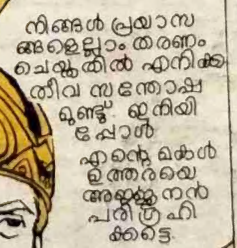 നിങ്ങൾ പ്രയാസ
ങ്ങളെല്ലാം തരണം
ചെയ്തതിൽ എനിക്കു
തീവ സന്തോഷ
മുണ്ടു്. ഇനിയി
പ്പോൾ
എന്റെ മകൾ
ഉത്തരയെ
അജ്ജുനൻ
പരിഗ്രഹി
ക്കട്ടെ.